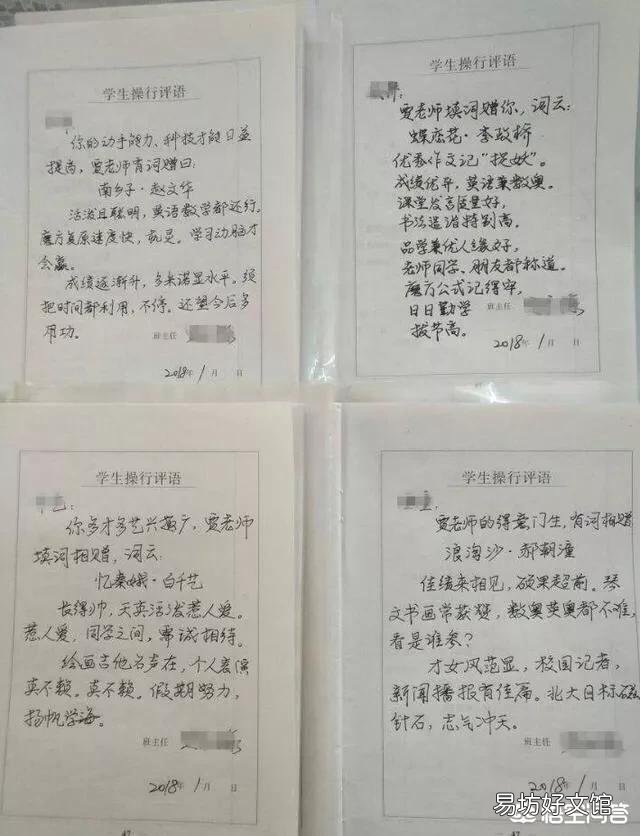 学生操行评语
你的动手能力、科技才能日益
提高，贾老师有词赠曰：
南乡子·赵文华
活泼且聪明，英语数学都还行。
魔方复原速度快，克灵。学习动脑才
会赢。
成绩逐渐升，多来诺显水平。须
把时间都利用，不停。还望今后多
用功。
班主任
2018年1月 日
学生操行评语
贾老师填词赠你，词云：
蝶恋花·李政桥
优秀作文记“捉妖”。
成绩优异，英语兼数奥。
课堂发言质量好，
书法造诣特别高。
品学兼优人缘好，
老师同学、朋友都称道。
魔方公式记得牢，
日日勤学
拔节高。
班主任
2018年1月 日
47
学生操行评语
艺：
你多才多艺兴趣广，贾老师
填词相赠，词云：
忆秦娥·白千艺
长得帅，天真活泼惹人爱。
惹人爱，同学之间，需诚相待。
绘画吉他名声在，个人表演
真不赖。真不赖。假期努力，
扬帆学海。
班主任
2018年1月 日
47
学生操行评语
贾老师的得意门生，有词相赠
浪淘沙·郝朝潼
佳绩来相见，硕果超前。琴
文书画常获赞，数奥英奥都不难，
看是谁参？
才女风范显，校园记者，
新闻播报有佳篇。北大目标磁
针石，志气冲天。
班主任
2018年1月 日
47
易坊好文馆
悟空问答